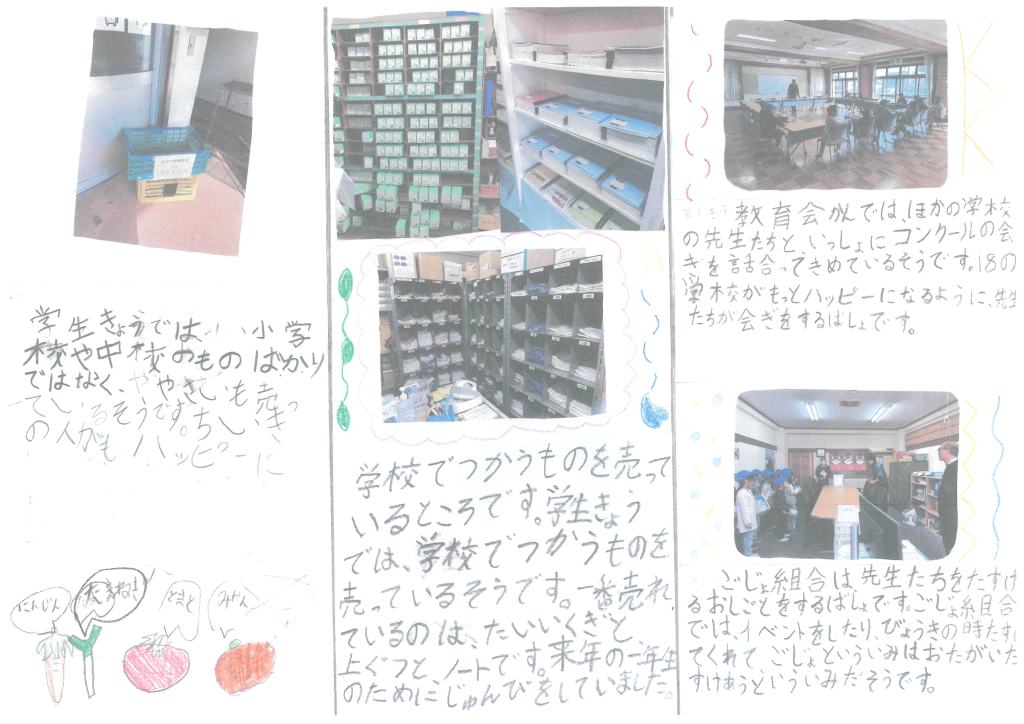 教育会かんでは、ほかの学校
の先生たちと、いっしょに コンクールの会
ぎを話合ってきめているそうです。18の
学校がもっとハッピーになるように、先生
たちが会ぎをするばしょです。
ごじょ組合は先生たちをたすけ
るおしごとをするばしょです。ごじょ組合
では、イベントをしたり、びょうきの時たすけ
てくれて ごじょといういみはおたがいた
すけあうといういみだそうです。
学校でつかうものを売って
いるところです。学生きょう
では、学校でつかうものを
売っているそうです。一番売れ
ているのは、たいいくぎと、
上ぐつと、ノートです。来年の一年生
のためにじゅんびをしていました。
学生きょうでは 小学
校や中校のものばかり
ではなく、やさいも売っ
ているそうです。ちいき
の人がも ハッピーに
にんじん
ねぎ
とまと
みかん